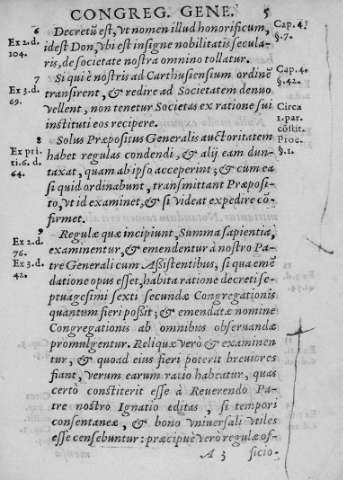 CONGREG. GENE. 5
6 Decretũ est, vt nomen illud honorificum,
idest Don, vbi est insigne nobilitatis secula-
ris, de societate nostra omnino tollatur.
Ex 2. d.
104.
Cap. 4.
§. 7.
7 Si qui è nostris ad Carthusiensium ordinẽ
transirent, & redire ad Societatem denuo
vellent, non tenetur Societas ex ratione sui
instituti eos recipere.
Ex 3. d.
69.
Cap. 4.
§. 42.
8 Solus Præpositus Generalis auctoritatem
habet regulas condendi, & alij eam dun-
taxat, quam ab ipso acceperint; & cum ea
si quid ordinabunt, transmittant Præposi-
to, vt id examinet, & si videat expedire cõ-
firmet.
Ex pri
ti. 6. d.
64.
Circa
1. par.
cõstit.
Proc.
§. 1.
9 Regulæ quæ incipiunt, Summa sapientia,
examinentur, & emendentur à nostro Pa-
tre Generali cum Assistentibus, si qua emẽ
datione opus esset, habita ratione decreti se-
ptuagesimi sexti secundæ Congregationis
quantum fieri possit; & emendatæ nomine
Congregationis ab omnibus obseruandæ
promulgentur. Reliquæ verò & examinen
tur, & quoad eius fieri poterit breuiores
fiant, verum earum ratio habeatur, quas
certò constiterit esse à Reuerendo Pa-
tre nostro Ignatio editas, si tempori
consentaneæ, & bono vniuersali vtiles
esse censebuntur: præcipuè verò regulæ of-
Ex 2. d.
76.
Ex 3. d.
42.
A 3 ficio-